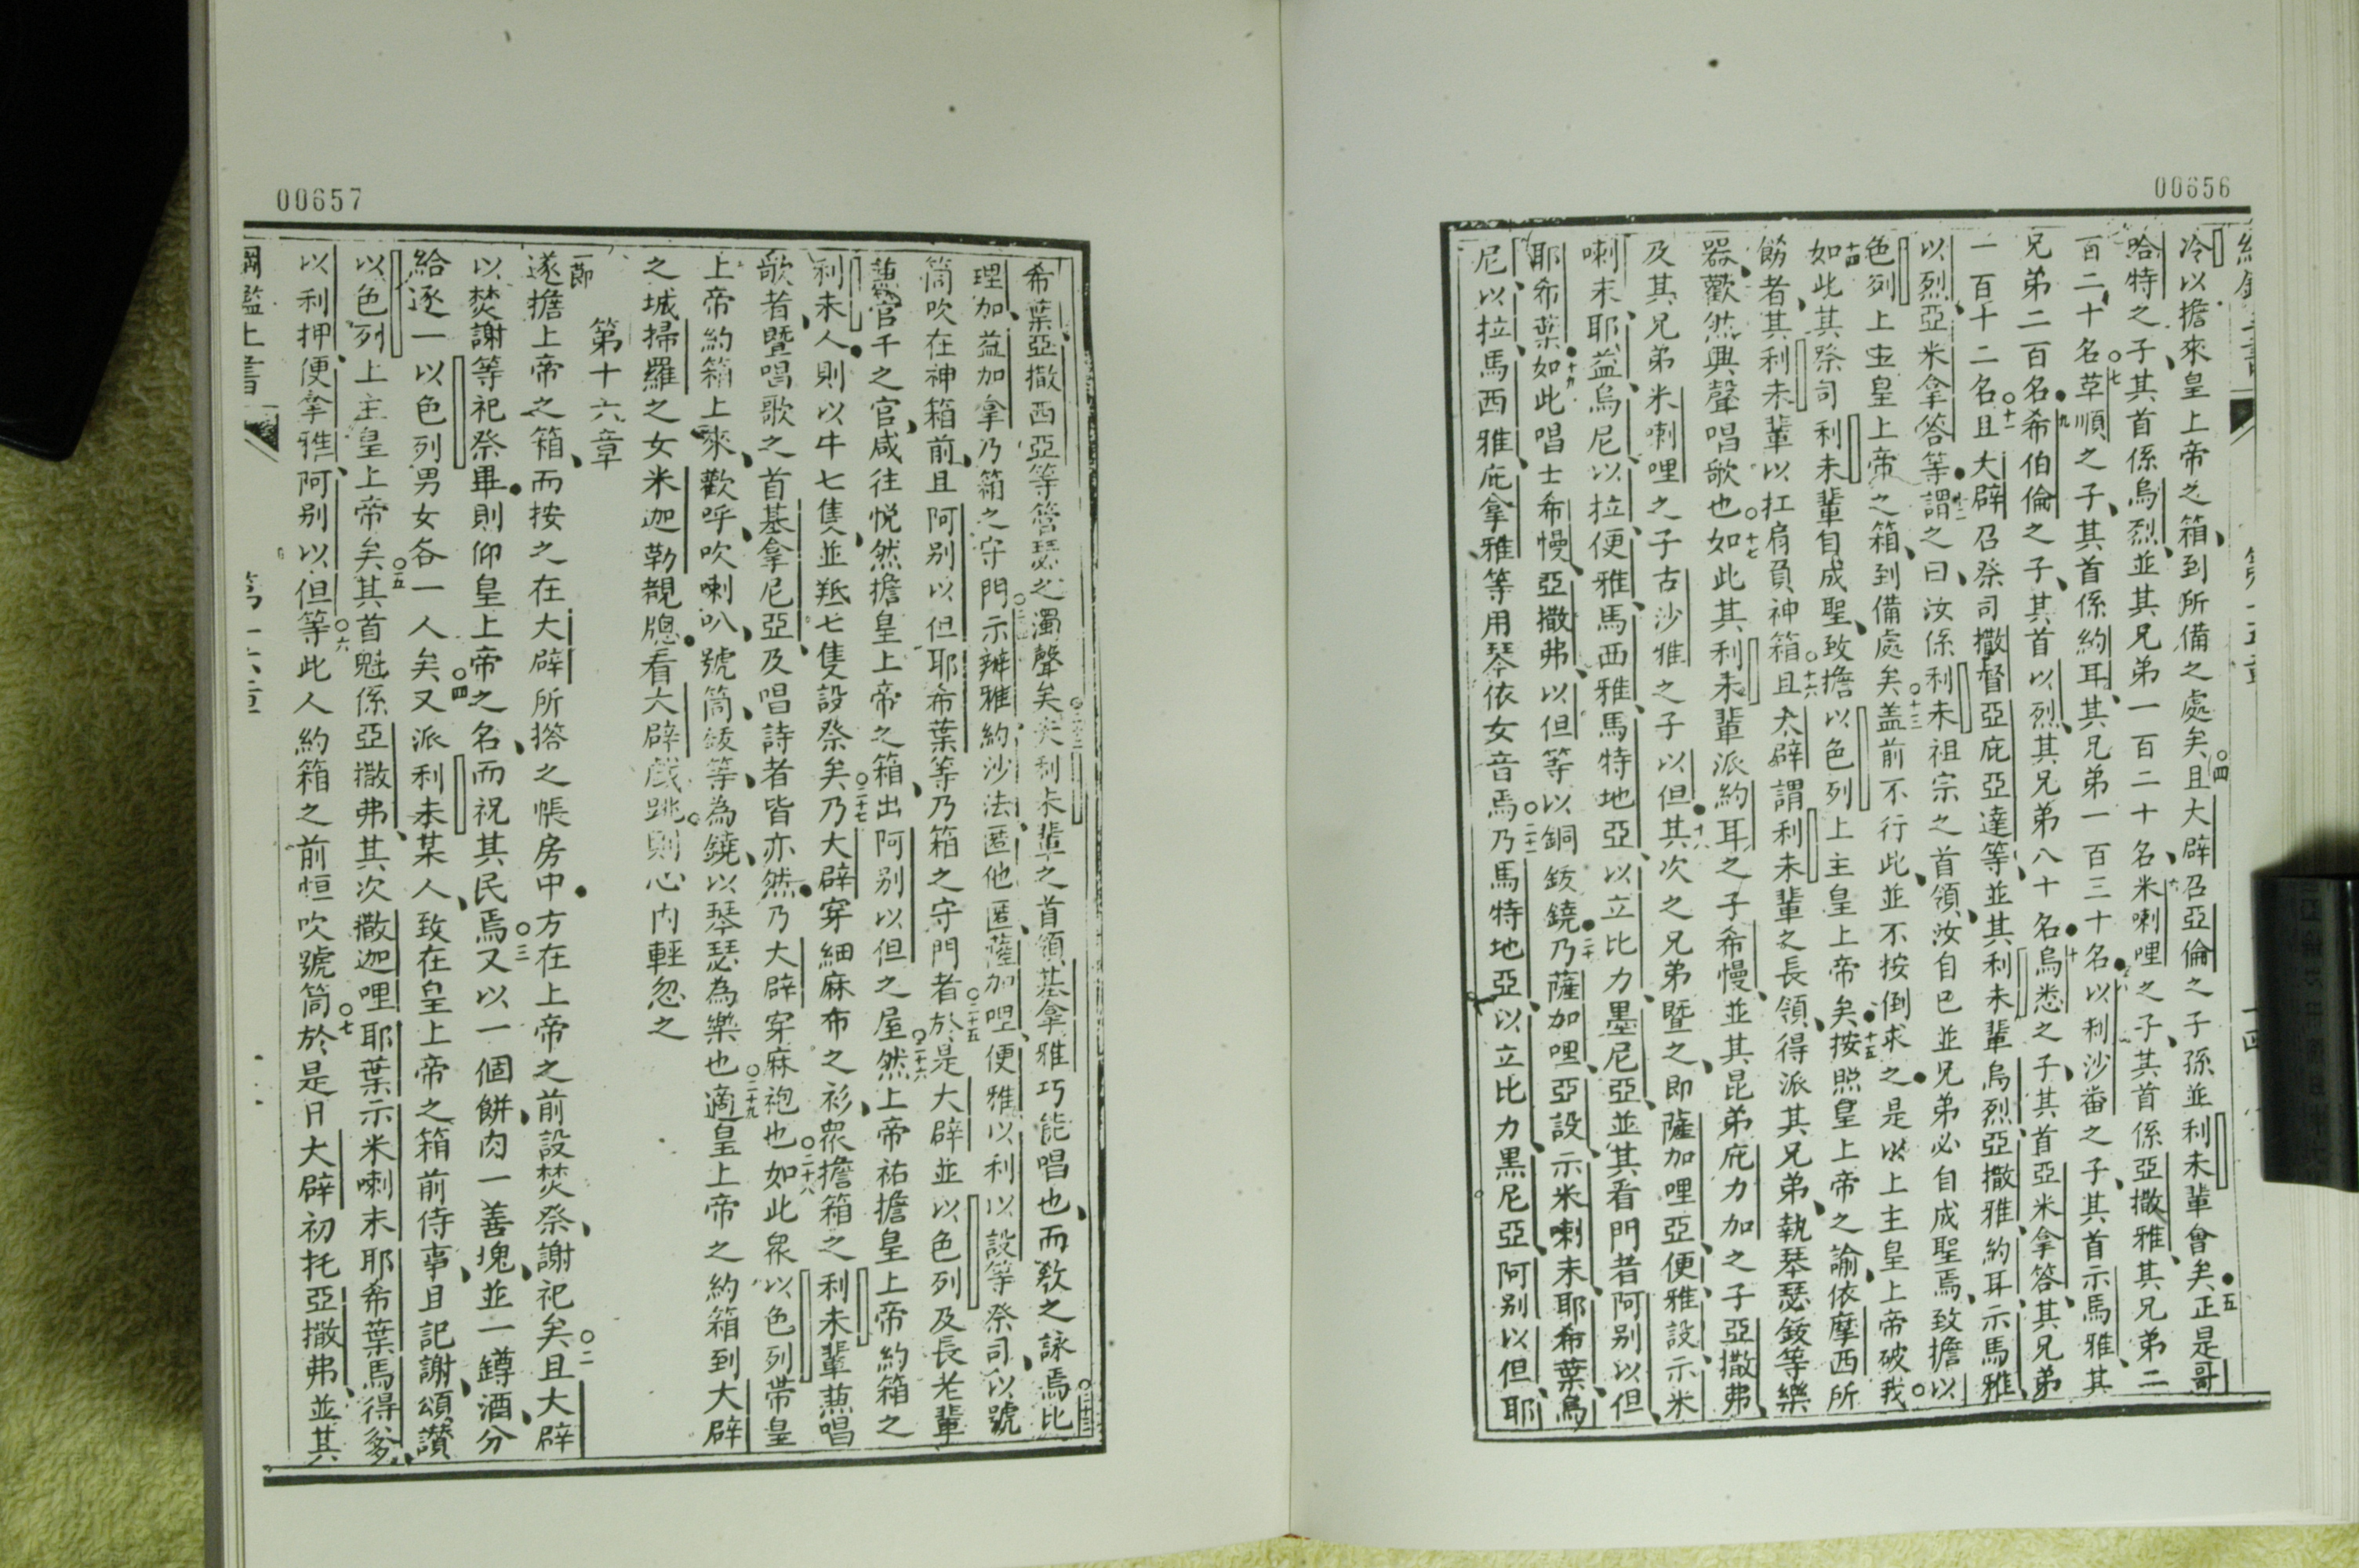 00656
冷以擔來皇上帝之箱到所備之處矣○四且大辟召亞倫之子孫並利未輩會矣○五正是哥
哈特之子其首係烏烈並其兄弟一百二十名米喇哩之子其首係亞撒雅其兄弟二
百二十名○七草順之子其首係約耳其兄弟一百三十名以利沙番之子其首示馬雅其
兄弟二百名○九希伯倫之子其首以烈其兄弟八十名○十烏悉之子其首亞米拿答其兄弟
一百十二名○十一且大辟召祭司撒督亞庇亞達等並其利未輩烏烈亞撒雅約耳示馬雅
以烈亞米拿答等○十二謂之曰汝係利未祖宗之首領汝自己並兄弟必自成聖焉致擔以
色列上主皇上帝之箱到備處矣○十三盖前不行此並不按倒求之是以上主皇上帝破我○
十四如此其祭司利未輩自成聖致擔以色列上主皇上帝矣○十五按照皇上帝之諭依摩西所
飭者其利未輩以扛肩負神箱○十六且大辟謂利未輩之長領得派其兄弟執琴瑟鈸等樂
器歡然興聲唱歌也○十七如此其利未輩派約耳之子希慢並其昆弟庇力加之子亞撒弗
及其兄弟米喇哩之子古沙雅之子以但○十八其次之兄弟暨之即薩加哩亞便雅設示米
喇末耶益烏尼以拉便雅馬西雅馬特地亞以立比力墨尼亞並其看門者阿别以但
耶希葉○十九如此唱士希慢亞撒弗以但等以銅鈸鐃○二十乃薩加哩亞設示米喇末耶希葉烏
尼以拉馬西雅庇拿雅等用琴依女音焉○二十一乃馬特地亞以立比力黑尼亞阿别以但耶
00657
希葉亞撒西亞等管瑟之濁聲矣○二十二夫利未輩之首領基拿雅巧能唱也而教之詠焉○二十三比
理加益加拿乃箱之守門示辦雅約沙法匿他匿薩加哩便雅以利以設等祭司以號
筒吹在神箱前且阿别以但耶希葉等乃箱之守門者○二十五於是大辟並以色列及長老輩
蕙官千之官咸往悅然擔皇上帝之箱出阿别以但之屋○二十六然上帝祐擔皇上帝約箱之
利未人則以牛七隻並羝七隻設祭矣○二十七乃大辟穿細麻布之衫衆擔箱之利未輩蕙唱
歌者暨唱歌之首基拿尼亞及唱詩者皆亦然乃大辟穿麻袍也○二十八如此衆以色列帶皇
上帝約箱上來歡呼吹喇叭號筒鈸等為鐃以琴瑟為樂也○二十九適皇上帝之約箱到大辟
之城掃羅之女米迦勒覩牕看大辟戲跳則心内輕忽之
第十六章
一節遂擔上帝之箱而按之在大辟所搭之帳房中方在上帝之前設焚祭謝祀矣○二且大辟
以焚謝等祀祭畢則仰皇上帝之名而祝其民焉○三又以一個餅肉一善塊並一罇酒分
給逐一以色列男女各一人矣○四又派利未某人致在皇上帝之箱前侍事且記謝頌讚
以色列上主皇上帝矣○五其首魁係亞撒弗其次撒迦哩耶葉示米喇末耶希葉馬得爹
以利押便拿雅阿别以但等○六此人約箱之前恒吹號筒○七於是日大辟初托亞撒弗並其
綱鑑上書 第十六章